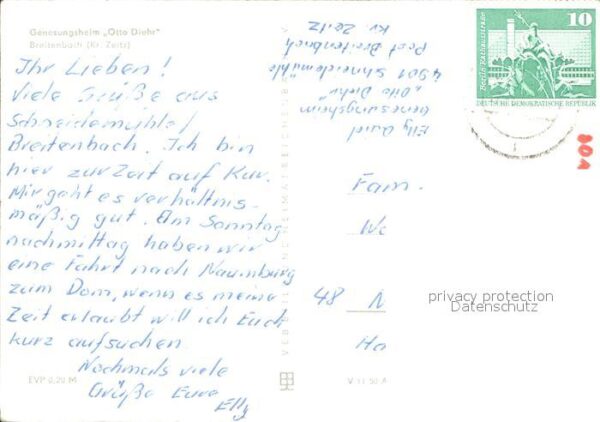 Genesungsheim „Otto Diehr"
Breitenbach (Kr. Zeitz)
Ihr Lieben!
Viele Grüße aus
Schneidemühle/
Breitenbach. Ich bin
hier zur Zeit auf Kur.
Mir geht es verhältnis-
mäßig gut. Am Sonntag
nachmittag haben wir
eine Fahrt nach Naumburg
zum Dom, wenn es meine
Zeit erlaubt will ich Euch
kurz aufsuchen.
Nochmals viele
Grüße Eure
Elly
EVP 0,20 M
Elly
Genesungsheim
"Otto Diehr"
4901 Schneidemühle
Post Breitenbach
Kr. Zeitz
10
Berlin, Rathausstraße
DEUTSCHE DEMOKRATISCHE REPUBLIK
Fam.
48 N
Ha
V 11 50 A
privacy protection
Datenschutz